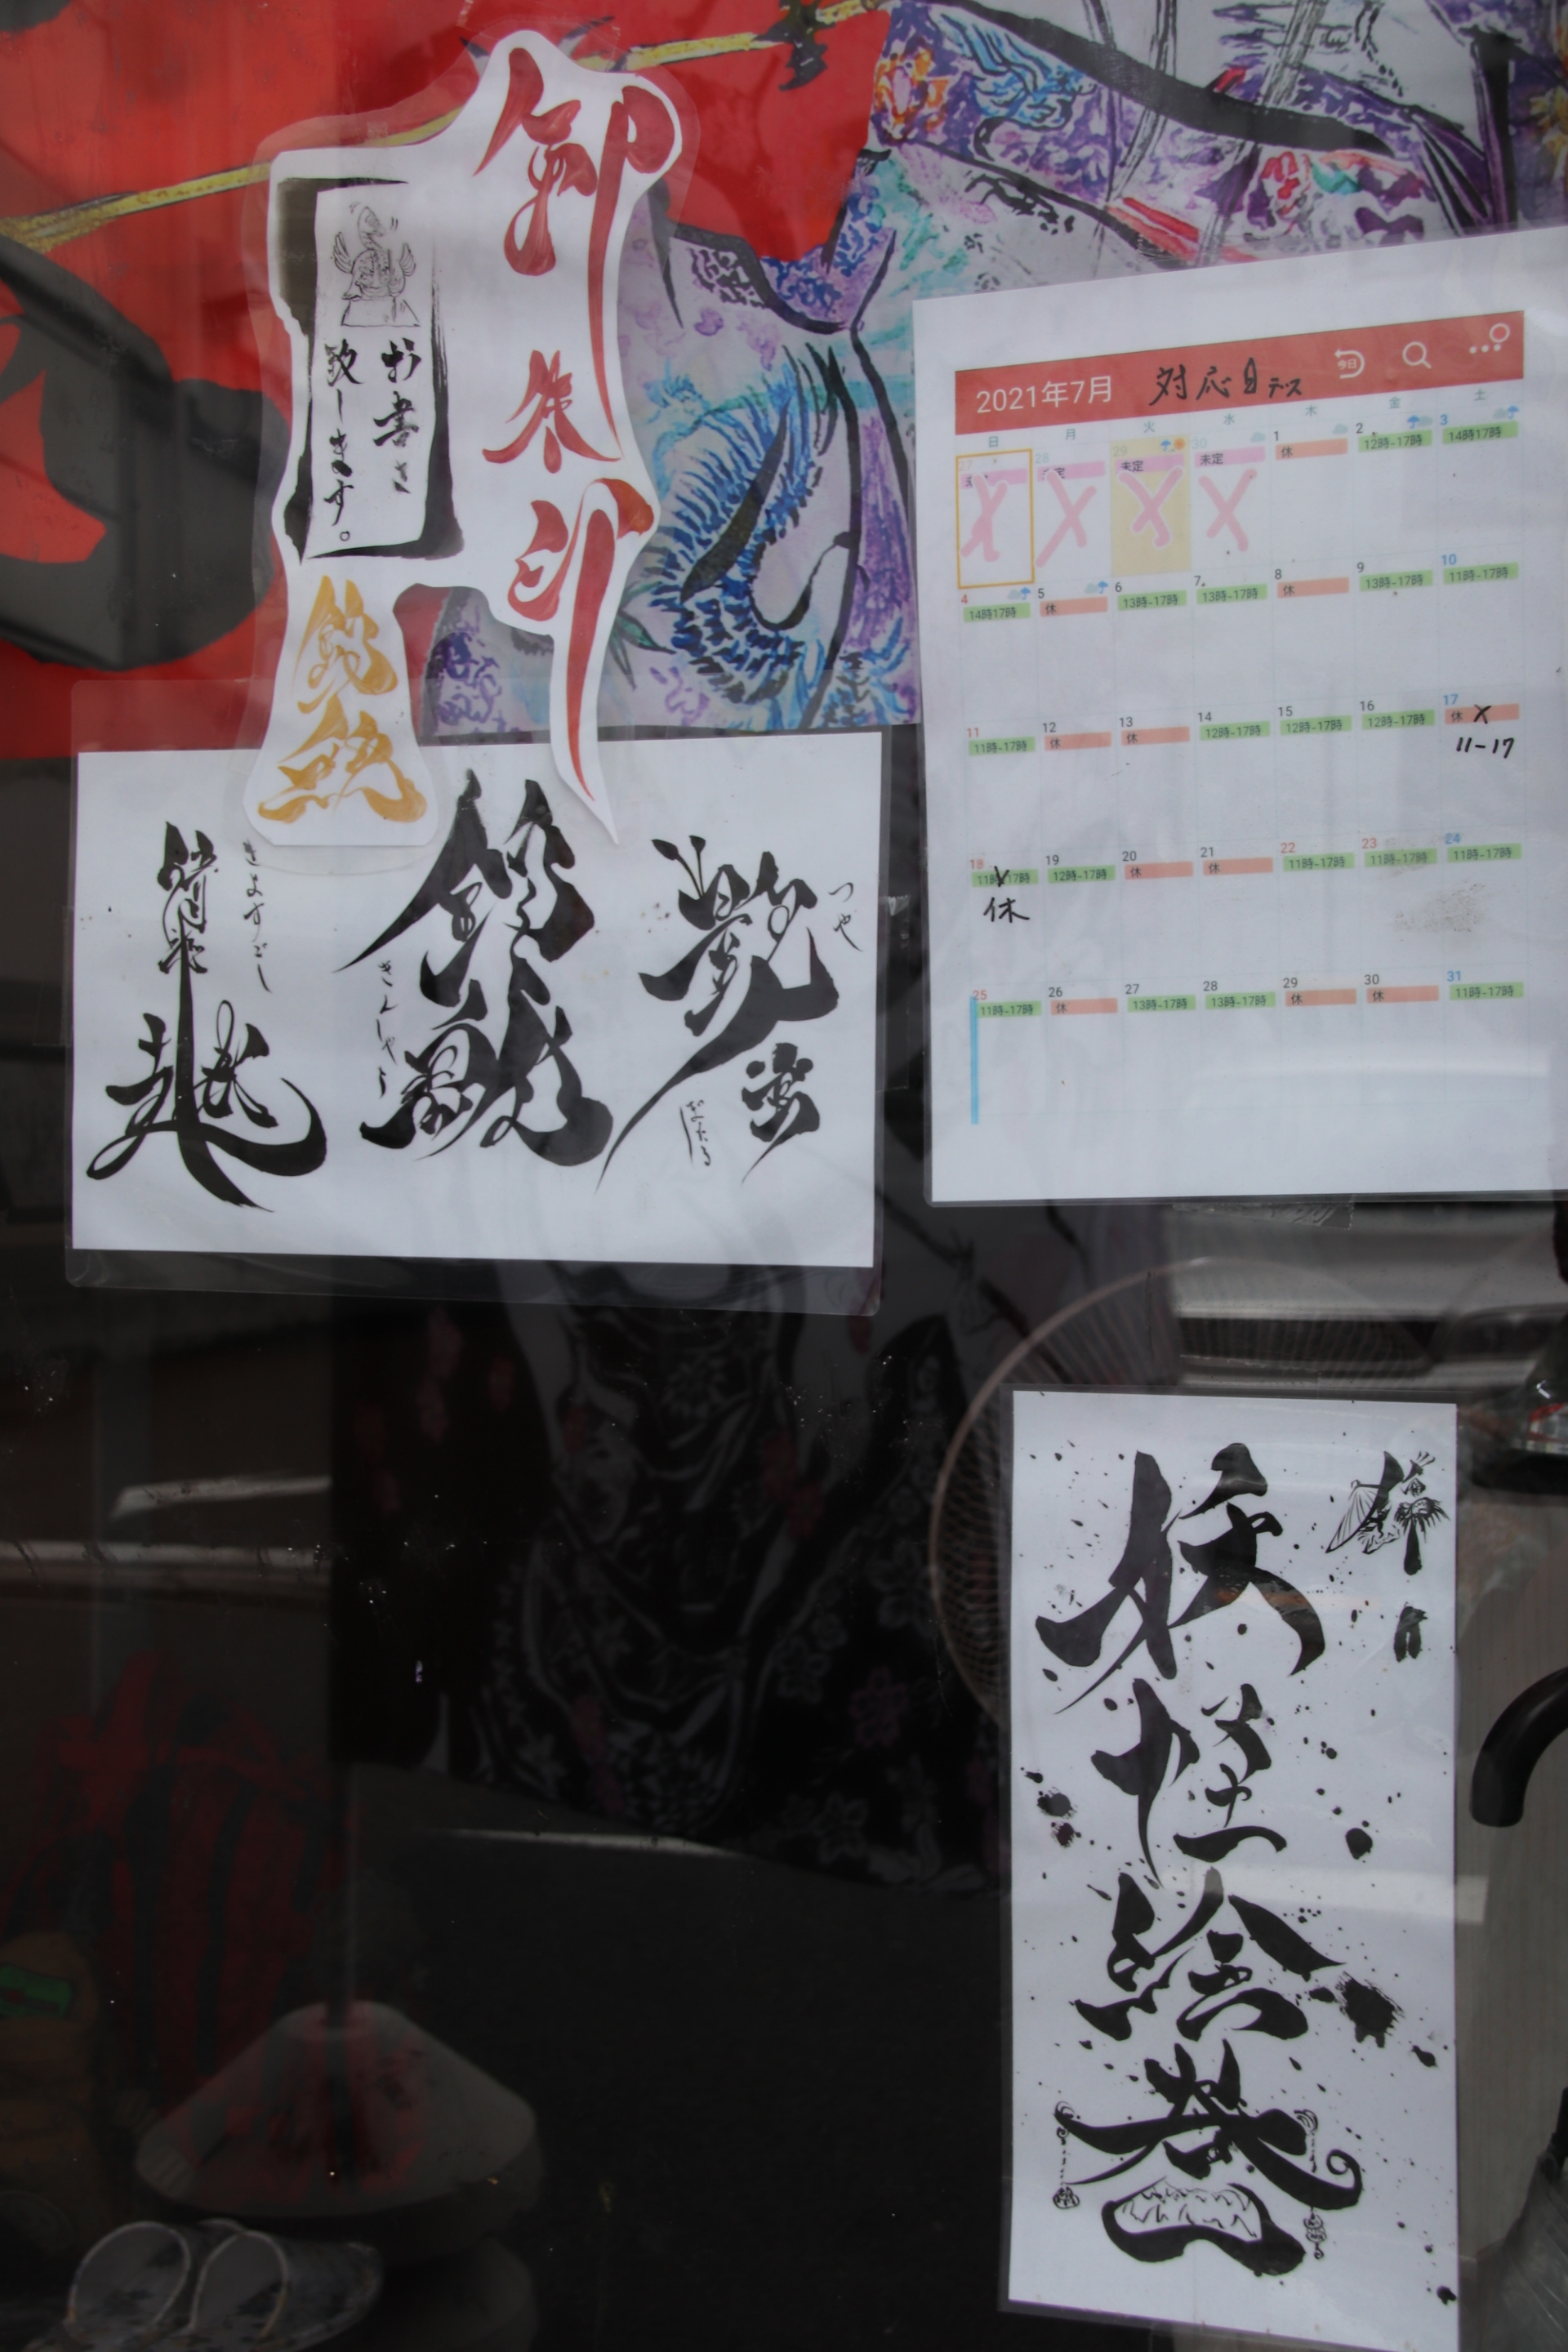 御朱印
お書き
致します。
2021年7月 対応日デス
今日
日 月 火 水 木 金 土
27 28 29 30 1 2 3
未定 未定 未定 休 12時-17時 14時17時
4 5 6 7 8 9 10
14時17時 休 13時-17時 13時-17時 休 13時-17時 11時-17時
11 12 13 14 15 16 17
11時-17時 休 休 12時-17時 12時-17時 12時-17時 休
11-17
18 19 20 21 22 23 24
11時17時 12時-17時 休 休 11時-17時 11時-17時 11時-17時
休
25 26 27 28 29 30 31
11時-17時 休 13時-17時 13時-17時 休 休 11時-17時
艶
つや
蛍
ぼたる
きんしゃち
きよすごし
越
妖怪絵巻